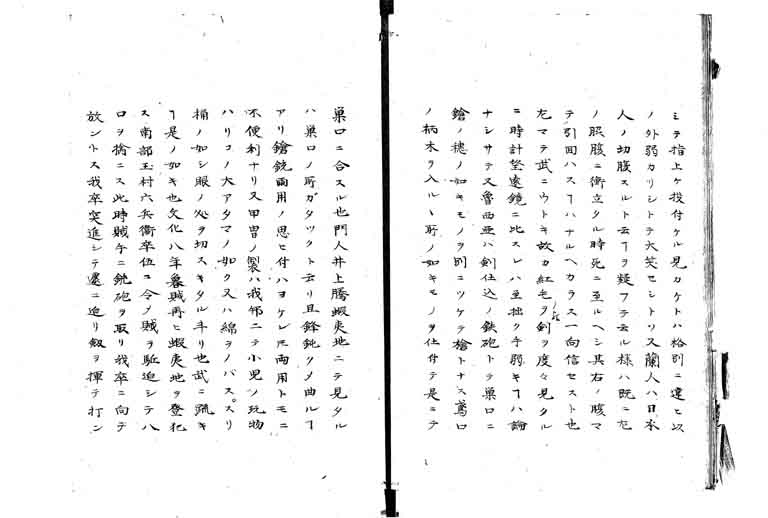 ミテ指上ケ投付ケル見カケトハ格別ニ違ヒ以
ノ外弱カリシトテ大笑セシトソ又蘭人ハ日本
人ノ切腹スルト云フヲ疑フテ云ル様ハ既ニ左
ノ脇腹ニ衝立タル時死ニ至ルヘシ其右ノ腹マ
テ引回ハス丁ハナルヘカラス一向信セスト也
左マテ武ニウトキ故カ紅毛ノ剣ヲ度々見タル
ニ時計望遠鏡ニ比スレハ至拙ク手弱キ丁ハ論
ナシサテ又魯西亜ハ剣仕込ノ鉄砲トテ巣口ニ
鎗ノ穂ノ如キモノヲ別ニツケテ槍トナス鳶口
ノ柄木ヲ入ルヽ所ノ如キモノヲ仕付テ是ニテ
巣口ニ合スル也門人井上騰蝦夷地ニテ見タル
ハ巣口ノ所ガタツクト云リ且鋒鈍クメ曲ル丁
アリ鎗銃両用ノ思ヒ付ハヨケレ𪜈両用トモニ
不便利ナリ又甲冑ノ製ハ我邦ニテ小児ノ玩物
ハリコノ大アタマノ如ク又ハ綿ヲノバス。スリ
桶ノ如シ眼ノ処ヲ切スキタル斗リ也武ニ疏キ
丁是ノ如キ也文化八年魯賊再ヒ蝦夷地ヲ登犯
ス南部玉村六兵衛卒伍ニ令メ賊ヲ駈迫シテ八
口ヲ擒ニス此時賊手ニ銃砲ヲ取リ我卒ニ向テ
放ントス我卒突進シテ還ニ迫リ釼ヲ揮テ打ン